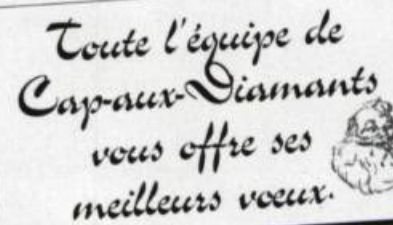 Toute l'équipe de
Cap-aux-Diamants
vous offre ses
meilleurs voeux.